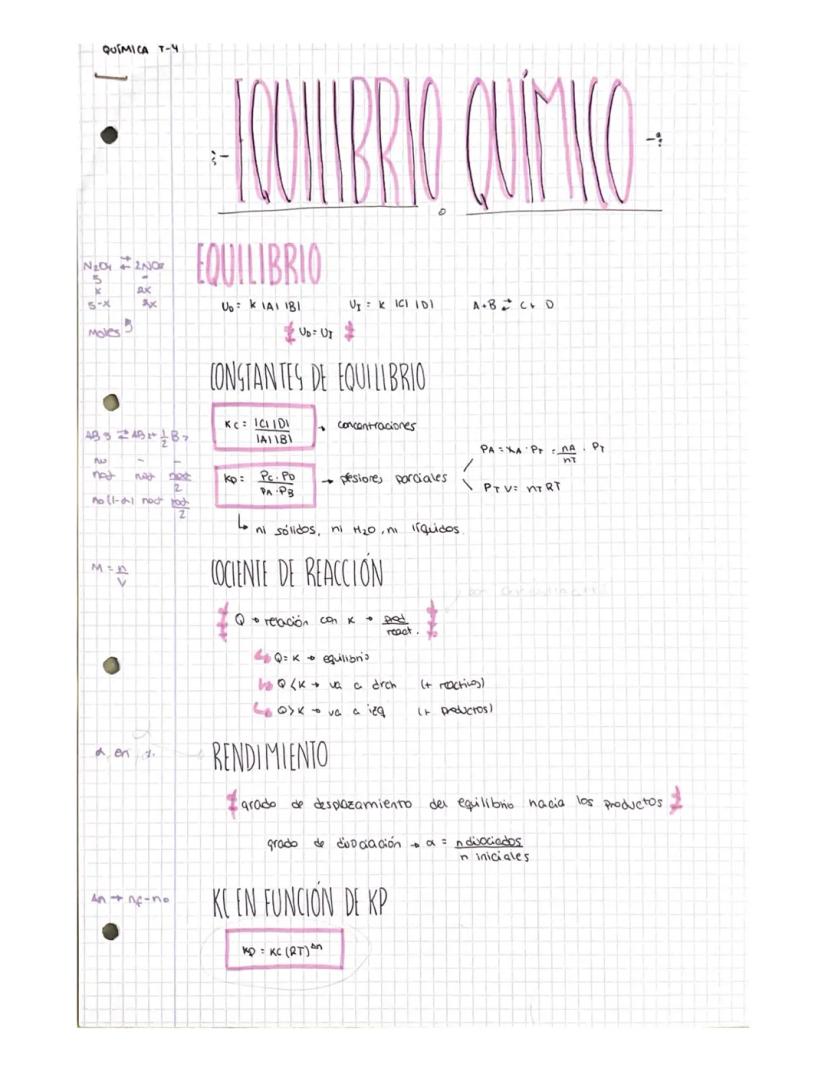 QUÍMICA T-4
EQUILIBRIO QUÍMICO
N2O4 ⇄ 2NO2
5 -
x 2x
5-x 2x
Moles
EQUILIBRIO
UD = K |A| |B| UI = K |C| |D| A+B ⇄ C+ D
UD = UI
CONSTANTES DE EQUILIBRIO
KC = |C| |D| / |A| |B| → concentraciones
AB3 ⇄ AB2 + 1/2 B2
no - -
noα noα noα/2
no(1-α) noα noα/2
Kp = PC · PD / PA · PB → presiones parciales
PA = XA · PT = nA/nT · PT
PT V = nT RT
↳ ni sólidos, ni H2O, ni líquidos
M = n/V
COCIENTE DE REACCIÓN
Q → relación con K → prod / react.
↳ Q = K → equilibrio
↳ Q < K → va a drch (+ reactivos)
↳ Q > K → va a izq (+ productos)
α en %
RENDIMIENTO
grado de desplazamiento del equilibrio hacia los productos
grado de disociación → α = n disociados / n iniciales
Δn → nf - no
KC EN FUNCIÓN DE KP
Kp = KC (RT)^Δn